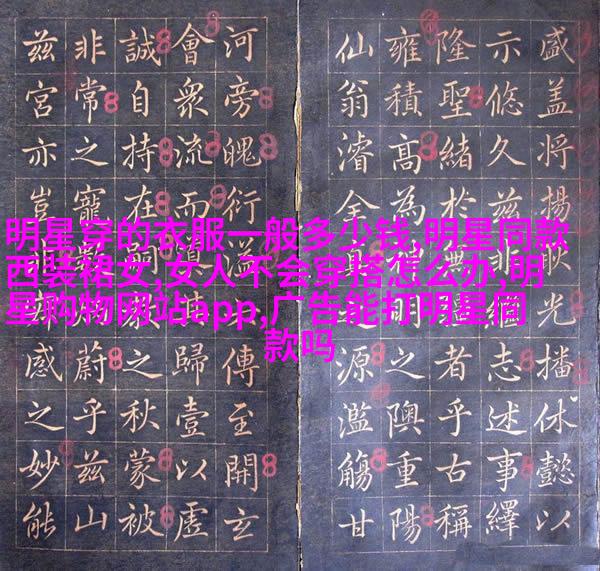 明星穿的衣服一般多少钱,明星同款
西装裙女,女人不会穿搭怎么办,明
星购物网站app,广告能打明星同
款吗
盛盖将揚光播休懿以
示悠久兹志述事繹
隆聖緒於無者乎古稱
雍積高為之隩重陽
仙翁濬全真源濫觴甘
河旁魄衍溢傳至開玄
會衆流而歸壹以虛
誠自持在嗣之秋蒙被
非常之寵蔚乎兹山
兹宮亦豈感之妙能